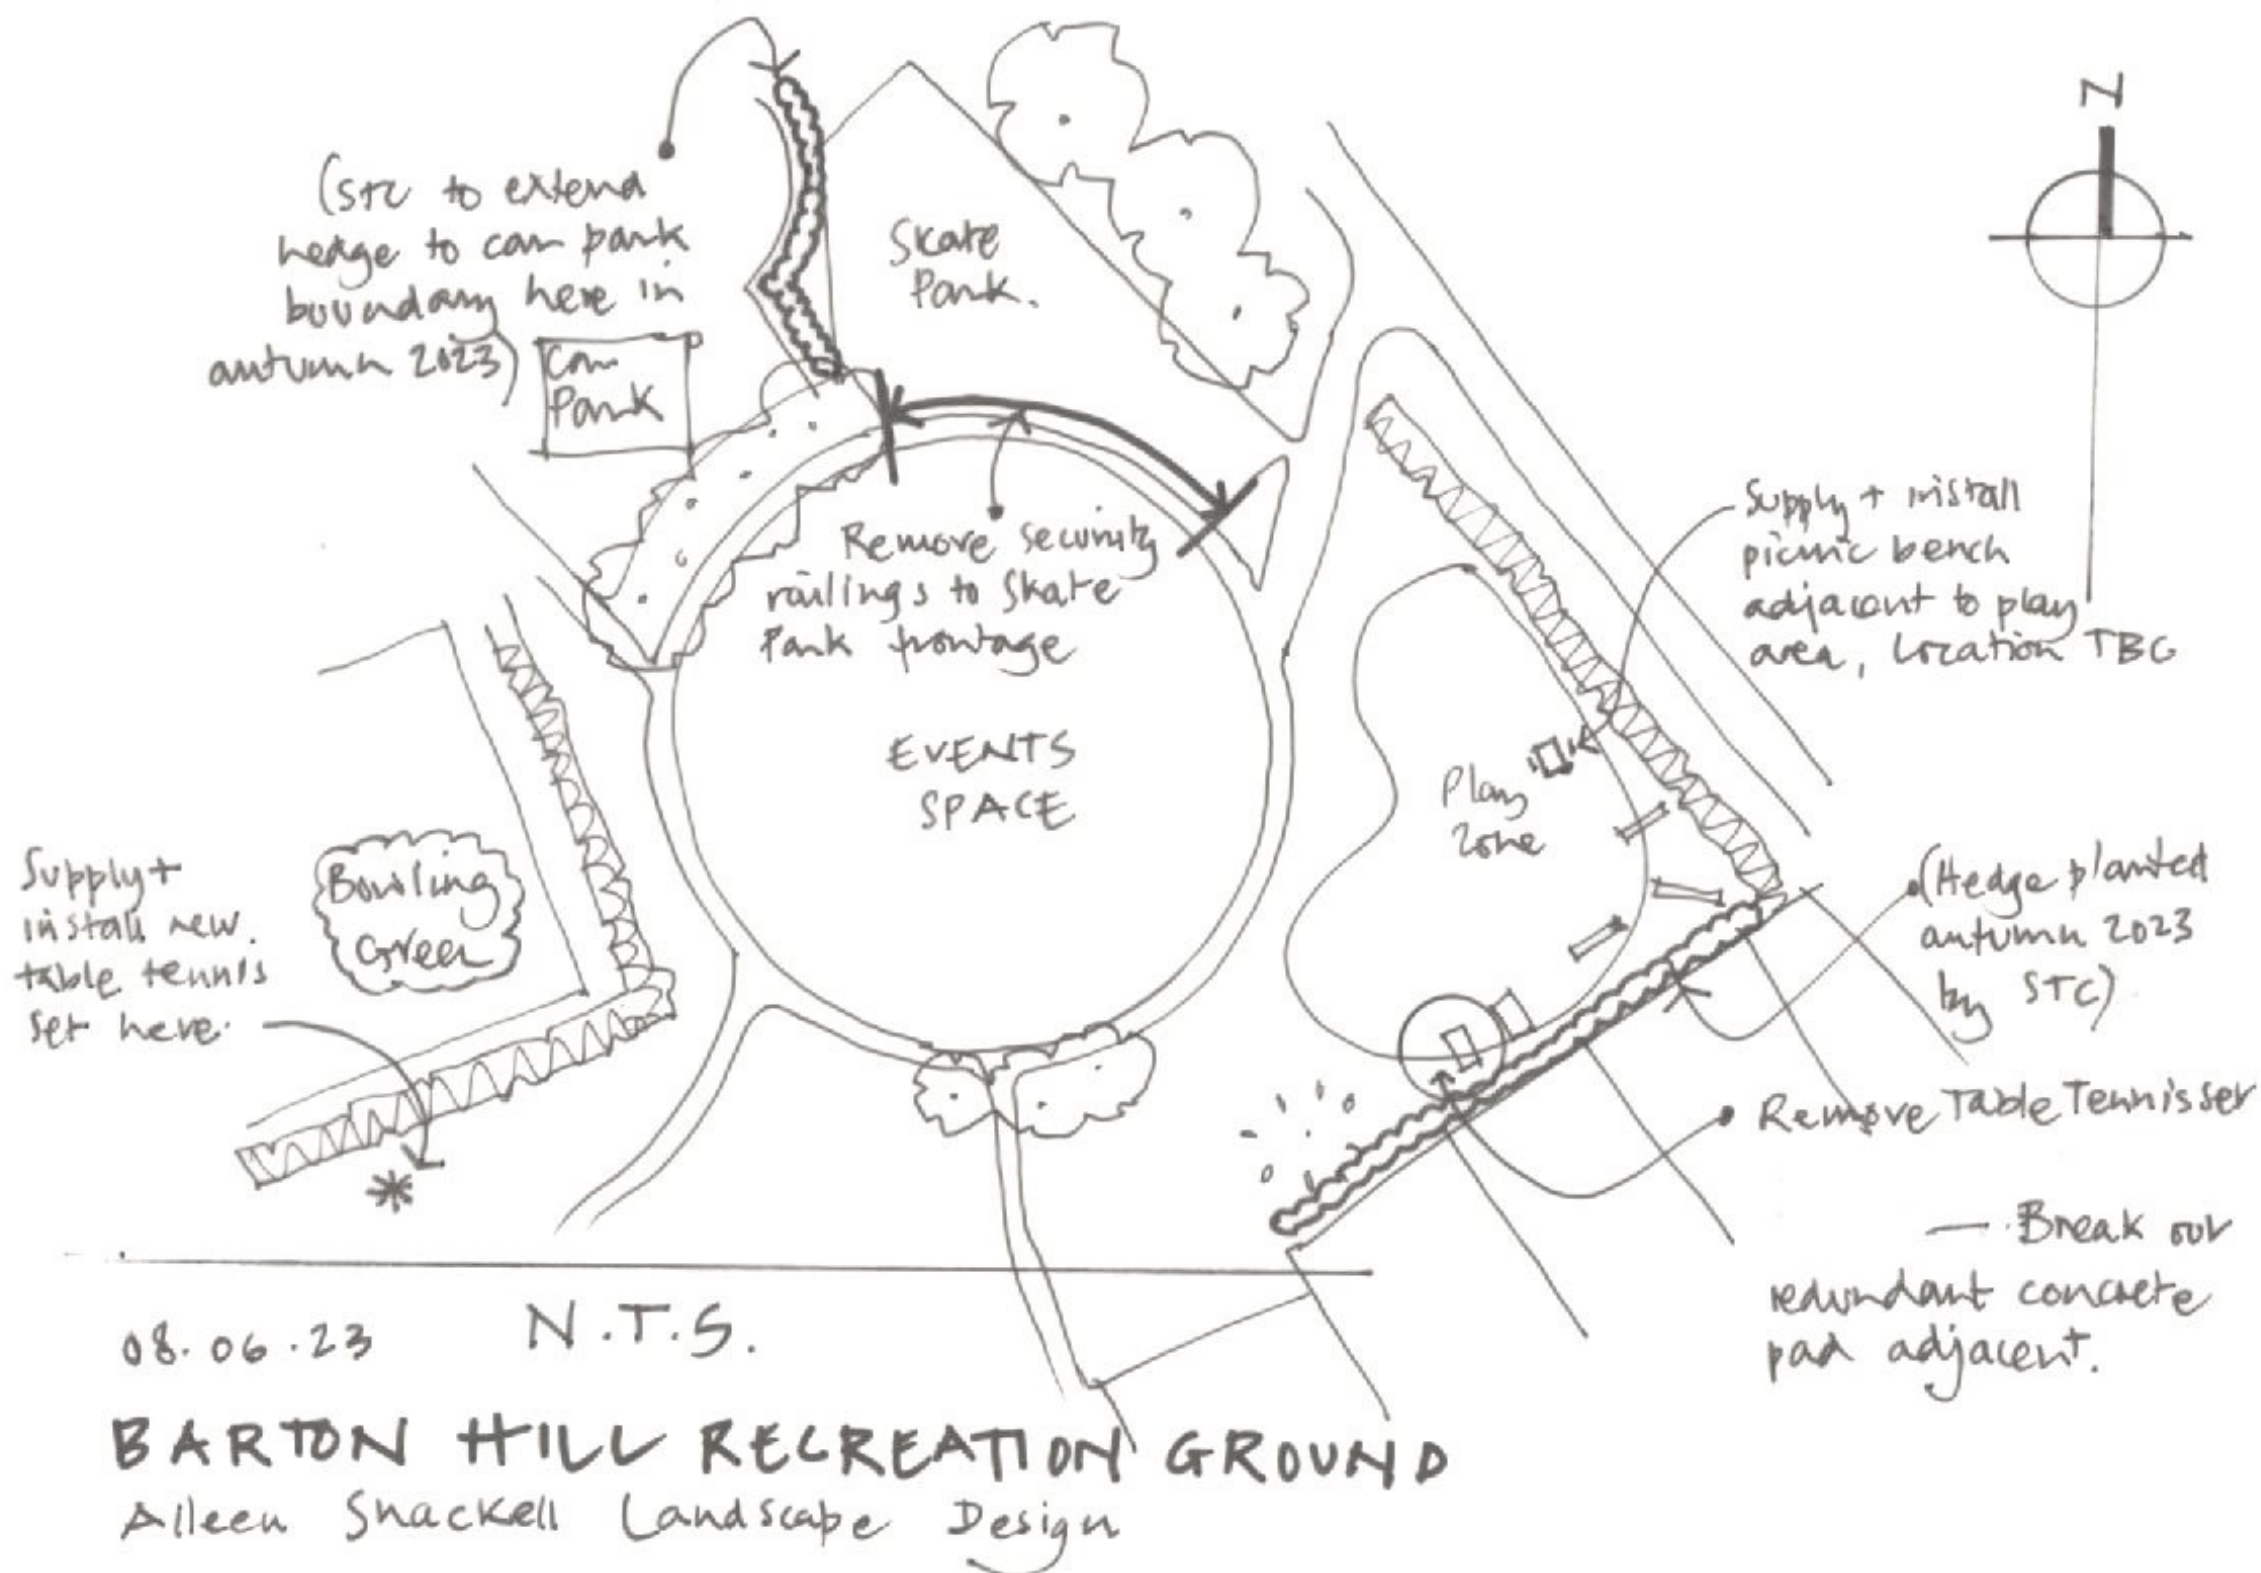 N
(STC to extend
hedge to car park
boundary here in
autumn 2023)
Car
Park
Skate
Park.
Remove security
railings to Skate
Park frontage
EVENTS
SPACE
Supply + install
picnic bench
adjacent to play
area, Location TBC
Play
Zone
Supply +
install new
table tennis
set here.
Bowling
Green
(Hedge planted
autumn 2023
by STC)
Remove Table Tennis set
— Break out
redundant concrete
pad adjacent.
08.06.23 N.T.S.
BARTON HILL RECREATION GROUND
Aileen Shackell Landscape Design